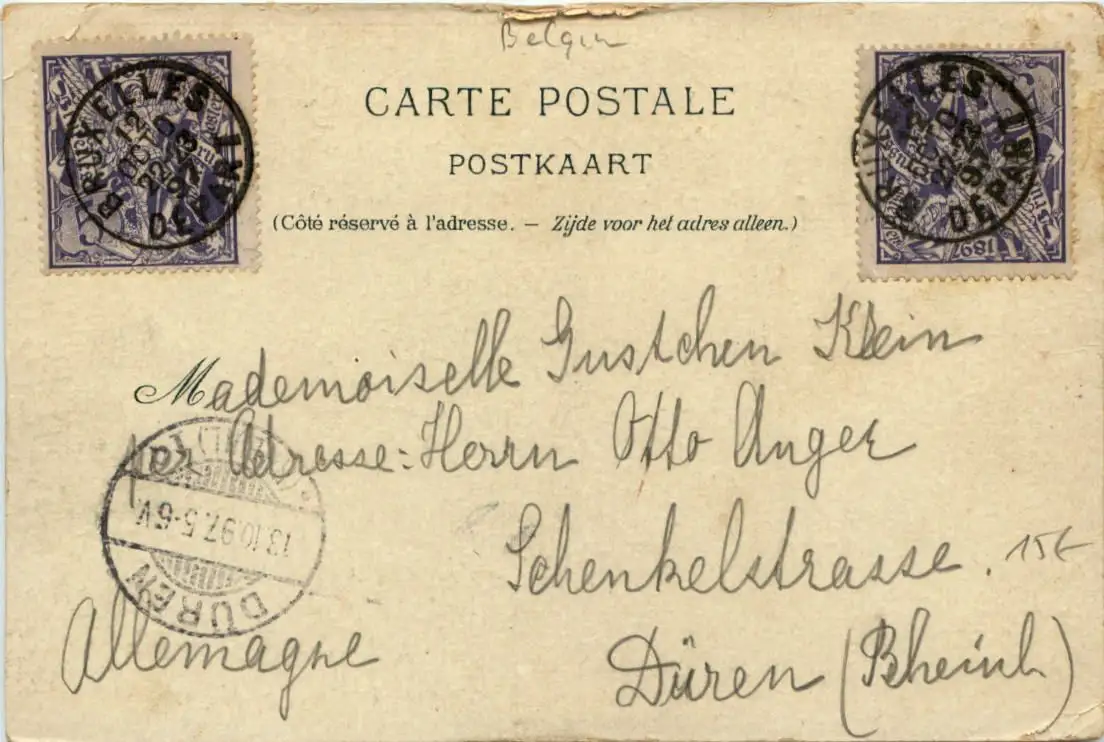 Belgien
CARTE POSTALE
POSTKAART
(Côté réservé à l'adresse. — Zijde voor het adres alleen.)
BRUXELLES
12 OCT
97
DEPART
BRUXELLES
12 OCT
97
DEPART
1897
Mademoiselle Gustchen Klein
per Adresse: Herrn Otto Anger
Schenkelstrasse.
15€
Düren (Rheinl)
Allemagne
DÜREN
13.10.97. 5-6V.